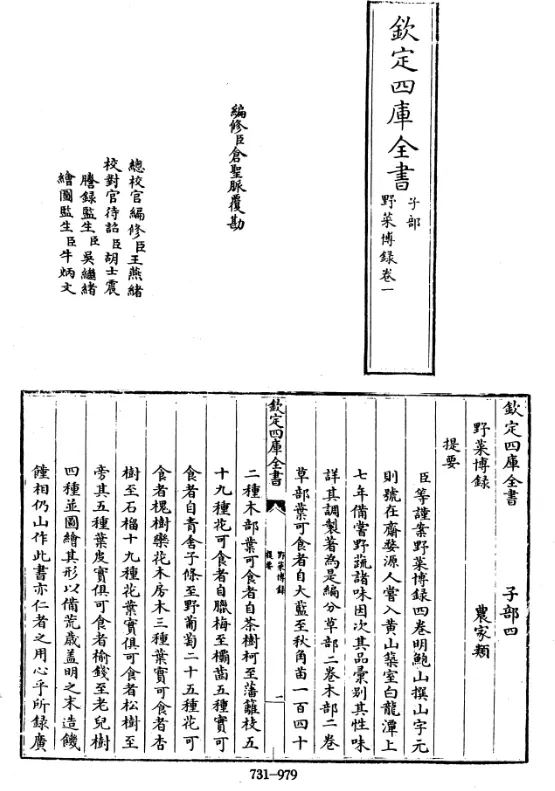 欽定四庫全書
子部
野菜博錄卷一
編修臣倉聖脈覆勘
總校官編修臣王燕緒
校對官待詔臣胡士震
謄錄監生臣吳繼緒
繪圖監生臣牛炳文
欽定四庫全書 子部四
野菜博錄 農家類
提要
臣等謹案野菜博錄四卷明鮑山撰山字元
則號在齋婺源人嘗入黃山築室白龍潭上
七年備嘗野蔬諸味因次其品彙別其性味
詳其調製著為是編分草部二卷木部二卷
草部葉可食者自大藍至秋角苗一百四十
欽定四庫全書
野菜博錄
提要
一
二種木部葉可食者自茶樹柯至藩籬枝五
十九種花可食者自臘梅至欛齒五種實可
食者自青舍子條至野葡萄二十五種花可
食者槐樹欒花木房木三種葉實可食者杏
樹至石榴十九種花葉實俱可食者松樹至
旁其五種葉皮實俱可食者榆錢至老兒樹
四種並圖繪其形以備荒歲蓋明之末造饑
饉相仍山作此書亦仁者之用心乎所錄廣
731-979